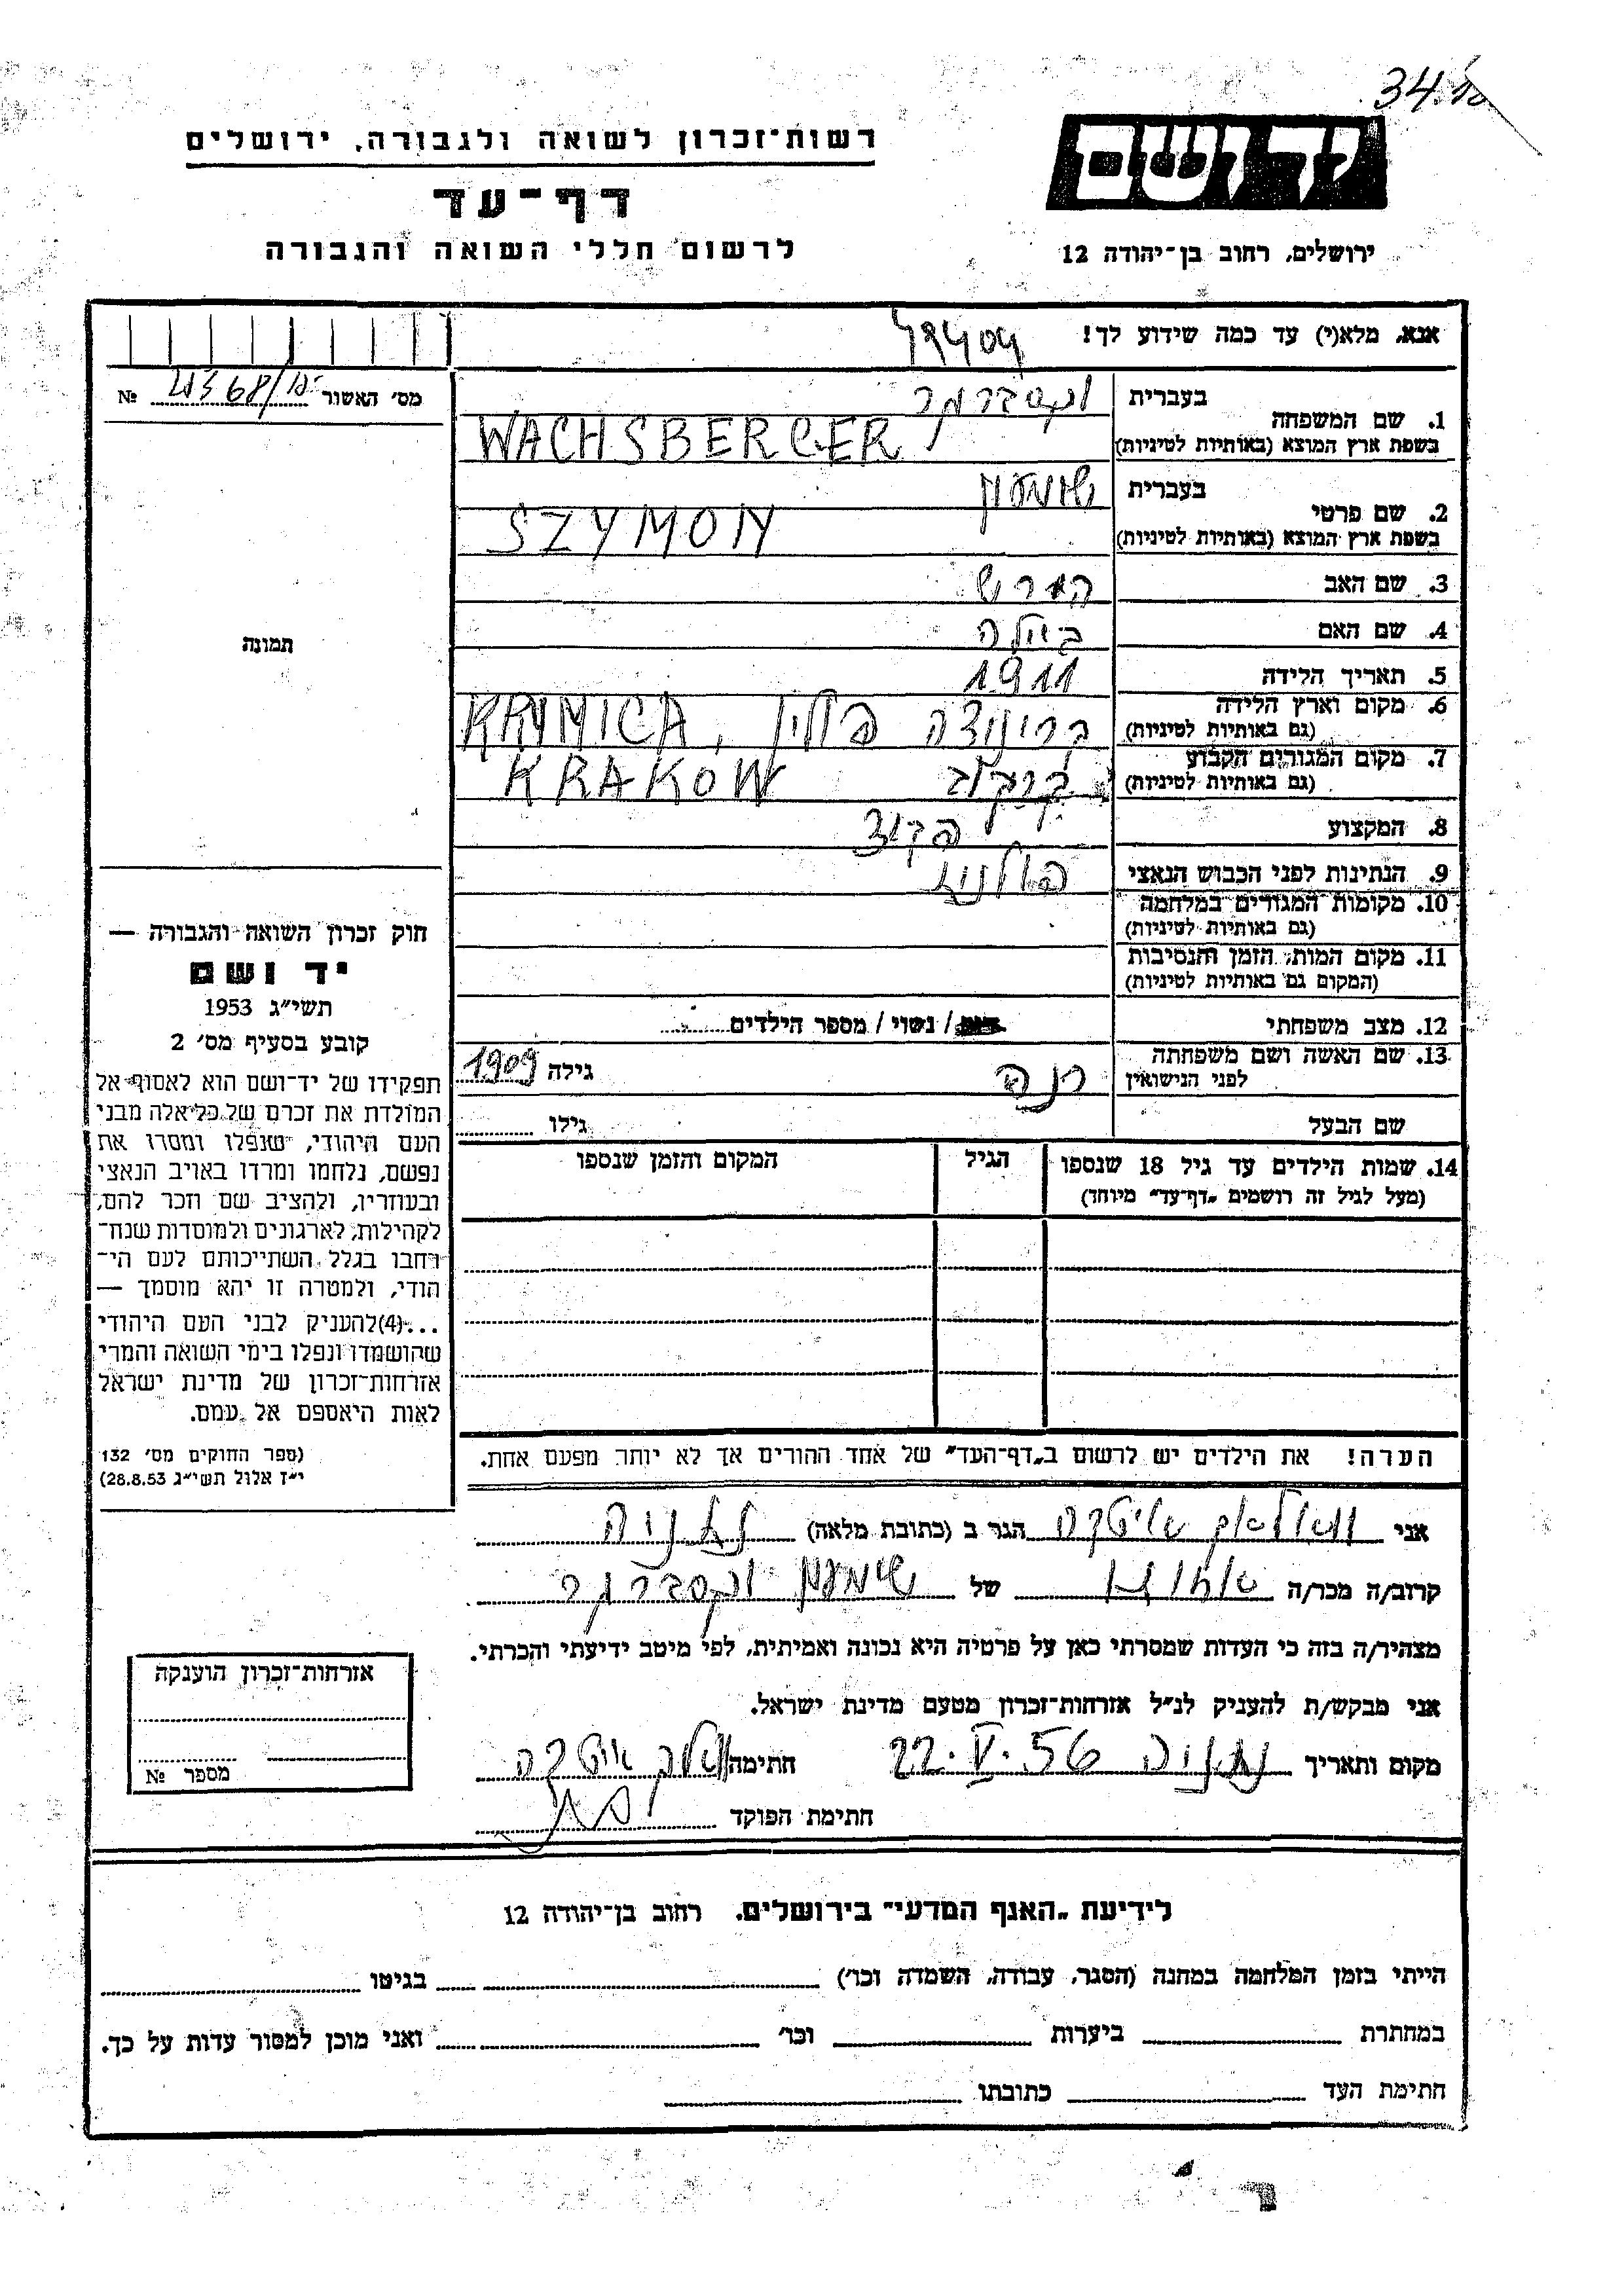 34
יד ושם
ירושלים, רחוב בן־יהודה 12
רשות־זכרון לשואה ולגבורה, ירושלים
דף־עד
לרשום חללי השואה והגבורה
אנא, מלא(י) עד כמה שידוע לך!
מס׳ האשור №
1. שם המשפחה
בעברית וקסברגר
בשפת ארץ המוצא (באותיות לטיניות) WACHSBERGER
2. שם פרטי
בעברית שמעון
בשפת ארץ המוצא (באותיות לטיניות) SZYMON
3. שם האב הירש
4. שם האם ביילה
5. תאריך הלידה 1911
6. מקום וארץ הלידה
(גם באותיות לטיניות) קריניצה פולין, KRYNICA
7. מקום המגורים הקבוע
(גם באותיות לטיניות) קרקוב KRAKOW
8. המקצוע פקיד
9. הנתינות לפני הכבוש הנאצי פולנית
10. מקומות המגורים במלחמה
(גם באותיות לטיניות)
11. מקום המות, הזמן והנסיבות
(המקום גם באותיות לטיניות)
12. מצב משפחתי / נשוי / מספר הילדים
13. שם האשה ושם משפחתה
לפני הנישואין גילה 1909
שם הבעל גילו
14. שמות הילדים עד גיל 18 שנספו
(מעל לגיל זה רושמים „דף־עד״ מיוחד)
הגיל
המקום והזמן שנספו
הערה! את הילדים יש לרשום ב„דף־העד״ של אחד ההורים אך לא יותר מפעם אחת.
תמונה
חוק זכרון השואה והגבורה —
יד ושם
תשי״ג 1953
קובע בסעיף מס׳ 2
תפקידו של יד־ושם הוא לאסוף אל
המולדת את זכרם של כל אלה מבני
העם היהודי, שנפלו ומסרו את
נפשם, נלחמו ומרדו באויב הנאצי
ובעוזריו, ולהציב שם וזכר להם,
לקהילות, לארגונים ולמוסדות שנח־
רבו בגלל השתייכותם לעם הי־
הודי, ולמטרה זו יהא מוסמך —
...(4)להעניק לבני העם היהודי
שהושמדו ונפלו בימי השואה והמרי
אזרחות־זכרון של מדינת ישראל
לאות היאספם אל עמם.
(ספר החוקים מס׳ 132
י״ז אלול תשי״ג 28.8.53)
אני הגר ב (כתובת מלאה) נתניה
קרוב/ה מכר/ה של שמעון וקסברגר
מצהיר/ה בזה כי העדות שמסרתי כאן על פרטיה היא נכונה ואמיתית, לפי מיטב ידיעתי והכרתי.
אני מבקש/ת להעניק לנ״ל אזרחות־זכרון מטעם מדינת ישראל.
מקום ותאריך נתניה 22.V.56 חתימה
חתימת הפוקד
אזרחות־זכרון הוענקה
מספר №
לידיעת „האגף המדעי״ בירושלים, רחוב בן־יהודה 12
הייתי בזמן המלחמה במחנה (הסגר, עבודה, השמדה וכו׳) בגיטו
במחתרת ביערות וכו׳ ואני מוכן למסור עדות על כך.
חתימת העד כתובתו